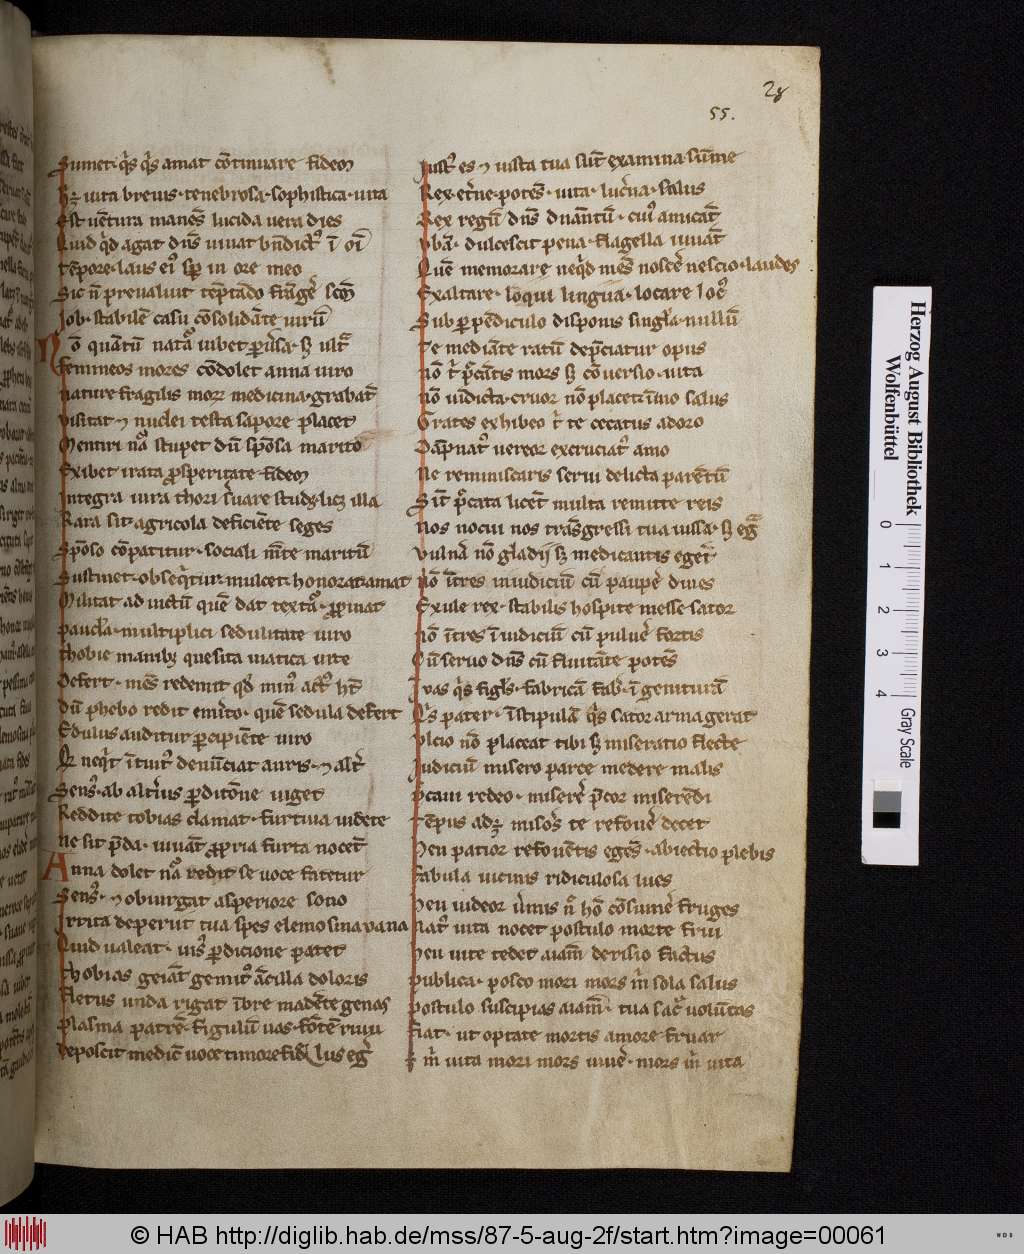 28
55.
Sumet. q̄s q̄s amat cōtinuare fidem
Hꝫ uita breuis. tenebrosa. sophistica. uita
Est uētura manēs lucida uera dies
Quid q̄d agat dn̄s uiuat bn̄dictꝰ ī om̄i
Tēpore. laus eiꝰ sp̄ in ore meo
Sic n̄ preualuit tēptatio frāgẽ scm̄
Job. stabilē casu cōsolidāte uirū
Nō quātū natā iubet puersa. sꝫ ult̄
Femineos mores cōdolet anna uiro
nature fragilis more medicina. grabat̄
visitat ⁊ nuclei testa sapore placet
Mentiri nā stupet dū spōsa marito
Exibet irata prosperitate fidem
Integra iura thori s̄uare studꝫ. licꝫ illa
Rara sit agricola deficiēte seges
Spōso cōpatitur. sociali mēte maritū
Sustinet. obseq̄tur. mulcet. honorat. amat
Militat ad uictū quē dat textā. propinat
paucla. multiplici sedulitate uiro
Thobie manibꝫ quesita uiatica uite
Defert. mēs redemit qd̄ minꝰ actꝰ hȳt
Dū phebo redit emīto. quē sedula defert
Edulus auditur percipiēte uiro
Q̄ neq̄t ītuit̄ denūciat auris. ⁊ alt̄
Sensꝰ. ab alt̄ius pditōne uiget
Reddite tobias clamat. furtiua uidete
ne sit p̄da. iuuāt propria furta nocēt
Anna dolet nā redit se uoce fatetur
Sensꝰ. ⁊ obiurgat asperiore sono
Irrita deperiit tua spes elemosina uana
Quid ualeat. uisꝰ perdicione patet
Thobias geiāt gemitꝰ ācilla doloris
Fletus unda rigat ībre madēte genas
Plasma patrē. figulū uas. fōtē riuu
Deposcit medic̄ uoce timore fidē
Justꝰ es ⁊ iusta tua sūt examina sūme
Rex. et̄ne. potēs. uita. luc̄na. salus
Rex regū dn̄s dn̄antū. cuiꝰ amicat̄
vbā. dulcescit pena. flagella iuuāt
Quē memorare neq̄d mēs noscē nescio. laudes
Exaltare. loqui lingua. locare locꝰ
Sub perpēdiculo disponis singla. nullū
Te mediāte ratū dep̄ciatur opus
nō t̄ p̄cātis mors sꝫ cōuersio. uita
nō uīdicta. cruor nō placet. īmo salus
Grates exhibeo t̄ te cecatus adoro
Dāpnatꝰ uereor excruciatꝰ amo
Ne reminiscaris serui delicta parētū
Sūt p̄cata licet multa remitte reis
nos nociui nos trāsgressi tua iussa. sꝫ eḡ
vulnā nō gladij sꝫ medicantis eget̄
nō ītres in iudiciū cū paupē diues
Exule rex. stabilis hospite messe sator
nō ītres ī iudiciū cū puluē fortis
Cū seruo dn̄s cū fluitāte potēs
Q̄s pater. īstipulā q̄s sator arma gerat
vlcio nō placeat tibi sꝫ miseratio flecte
Judiciū misero parce medere malis
p̄caui redeo. miserē p̄cor miserēdi
Tēpus adꝫ misōs te refouē decet
Heu patior refouētis egēs. abiectio plebis
Fabula uicinis ridiculosa lues
heu uideor ūmis n̄ hō cōsumē fruges
natꝰ uita nocet postulo morte frui
heu uite tedet aīam derisio factus
publica. posco mori mors m̄ sola salus
postulo suscipias aīam. tua sac̄ volūtas
Fiat. ut optate mortis amore fruar
ē m̄ uita mori mors uiuē. mors m̄ uita
Herzog August Bibliothek
Wolfenbüttel
0 1 2 3 4
Gray Scale
© HAB http://diglib.hab.de/mss/87-5-aug-2f/start.htm?image=00061